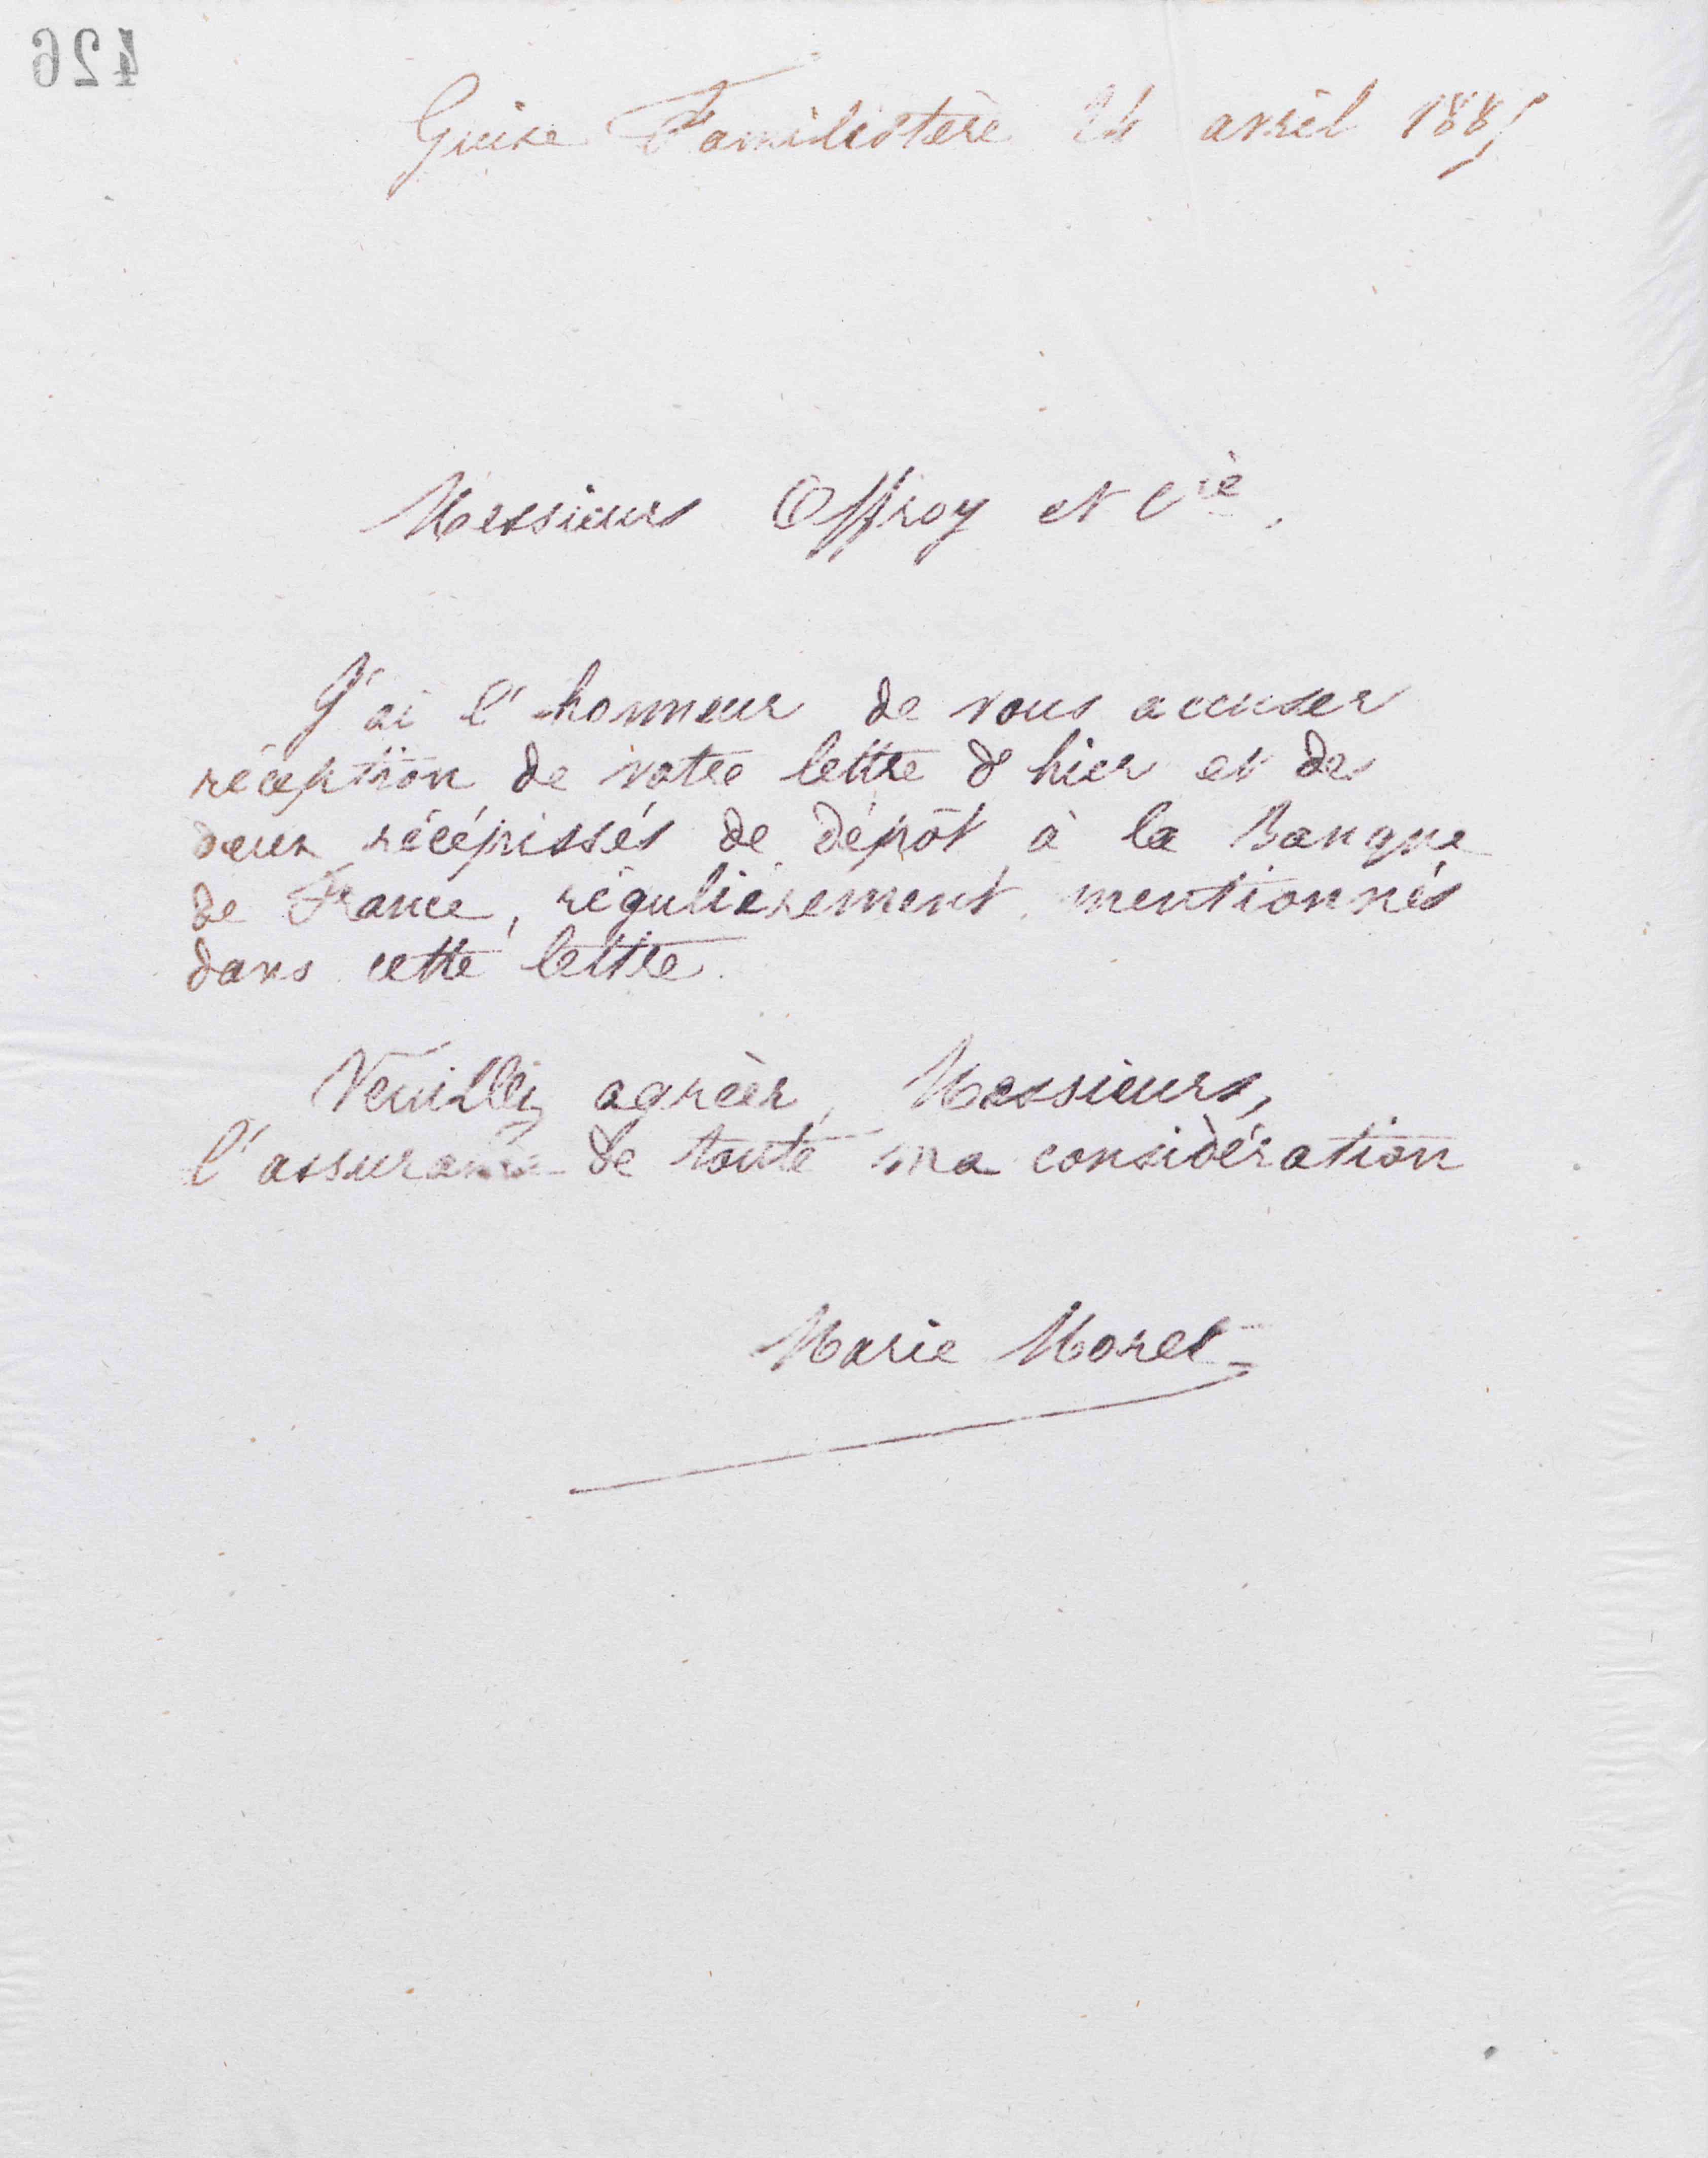 426
Guise Familistère 24 avril 188
Messieurs Offroy et Cie.
J'ai l'honneur de vous accuser
réception de votre lettre d'hier et des
deux récépissés de dépôt à la Banque
de France, régulièrement mentionnés
dans cette lettre.
Veuillez agréer, Messieurs,
l'assurance de toute ma considération
Marie Moret